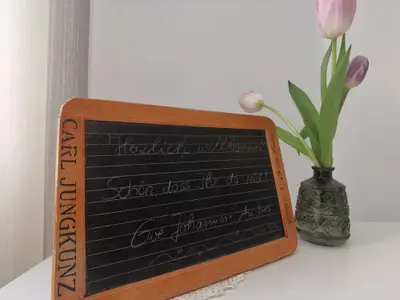 CARL JUNGKUNZ
Herzlich willkommen!
Schön, dass ihr da seid!
Eure Johannis-